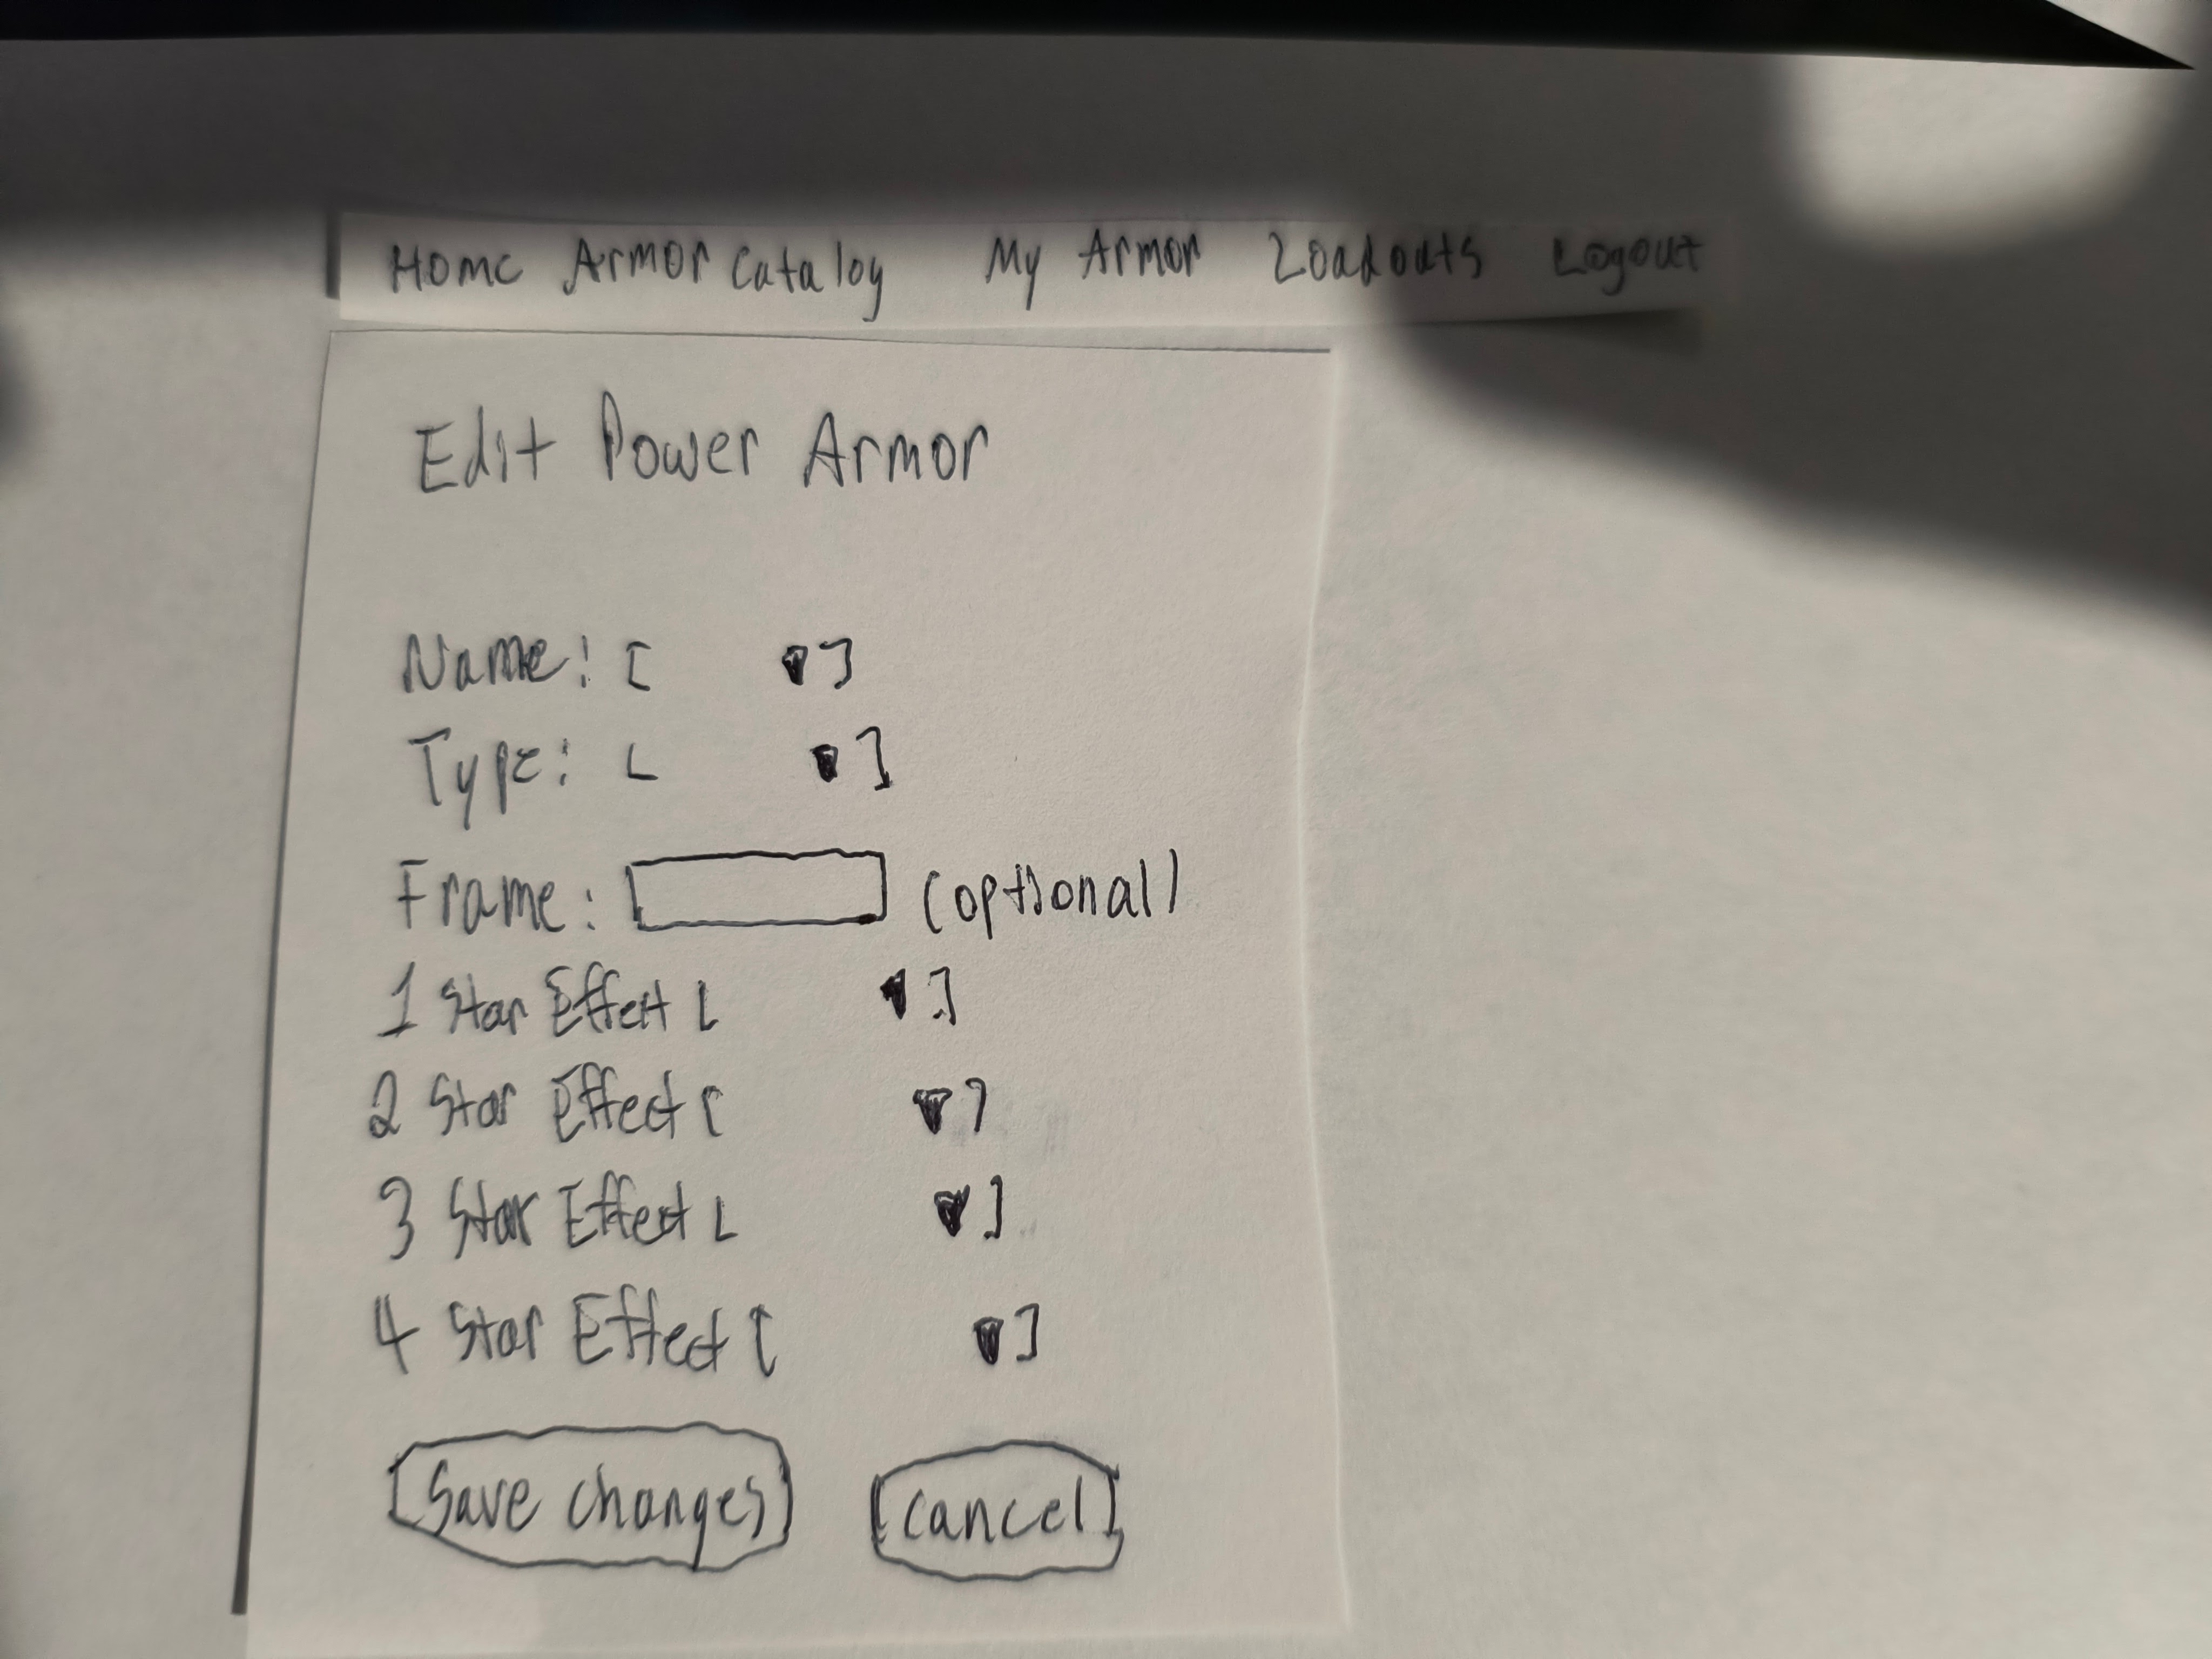 Home Armor Catalog My Armor Loadouts Logout
Edit Power Armor
Name: [ ▼]
Type: [ ▼]
Frame: (optional)
1 Star Effect [ ▼]
2 Star Effect [ ▼]
3 Star Effect [ ▼]
4 Star Effect [ ▼]
[Save changes] [cancel]